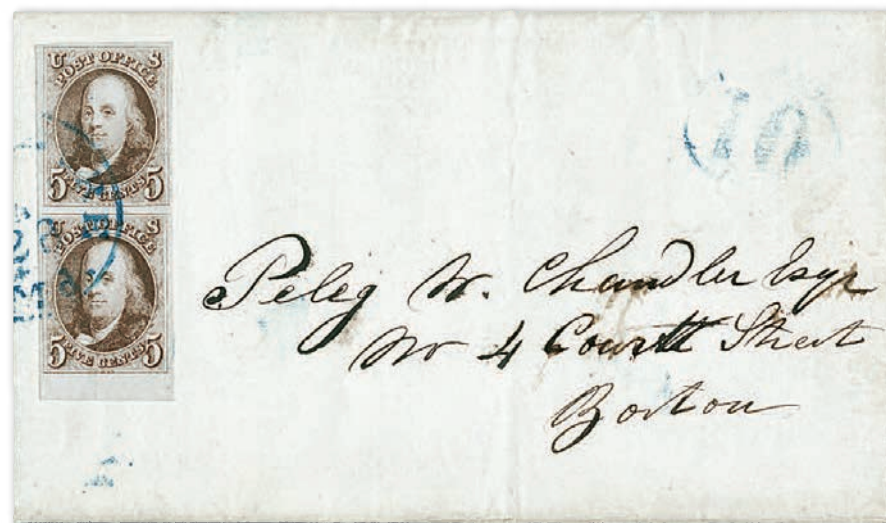 U S
POST OFFICE
5 FIVE CENTS 5
U S
POST OFFICE
5 FIVE CENTS 5
10
Peleg W. Chandler Esqr
No 4 Courtt Street
Boston